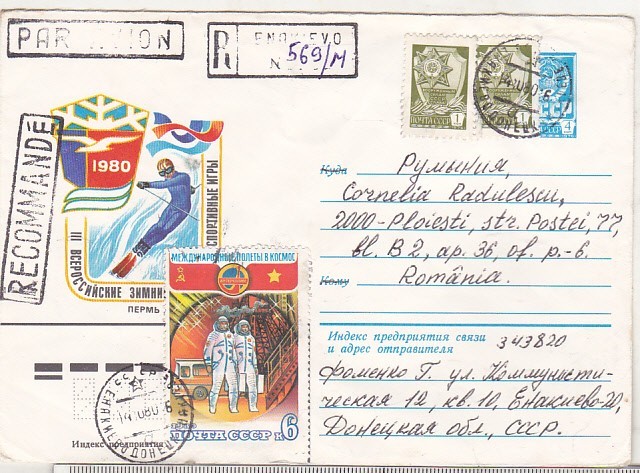 PAR AVION
R ENAKIEVO
N 569/M
RECOMMANDE
1980
III ВСЕРОССИЙСКИЕ ЗИМНИЕ СПОРТИВНЫЕ ИГРЫ
ПЕРМЬ
ПОЧТА СССР 1
ПОЧТА СССР 1
4
Куда Румыния,
Cornelia Radulescu,
2000-Ploiesti, str. Postei, 77,
bl. B2, ap. 36, of. p.-6.
Кому România.
МЕЖДУНАРОДНЫЕ ПОЛЕТЫ В КОСМОС
ПОЧТА СССР к6
Индекс предприятия связи
и адрес отправителя
343820
Фоменко Г. ул. Коммунисти-
ческая 10, кв. 10, Енакиево-20,
Донецкая обл., СССР.
Индекс предприятия